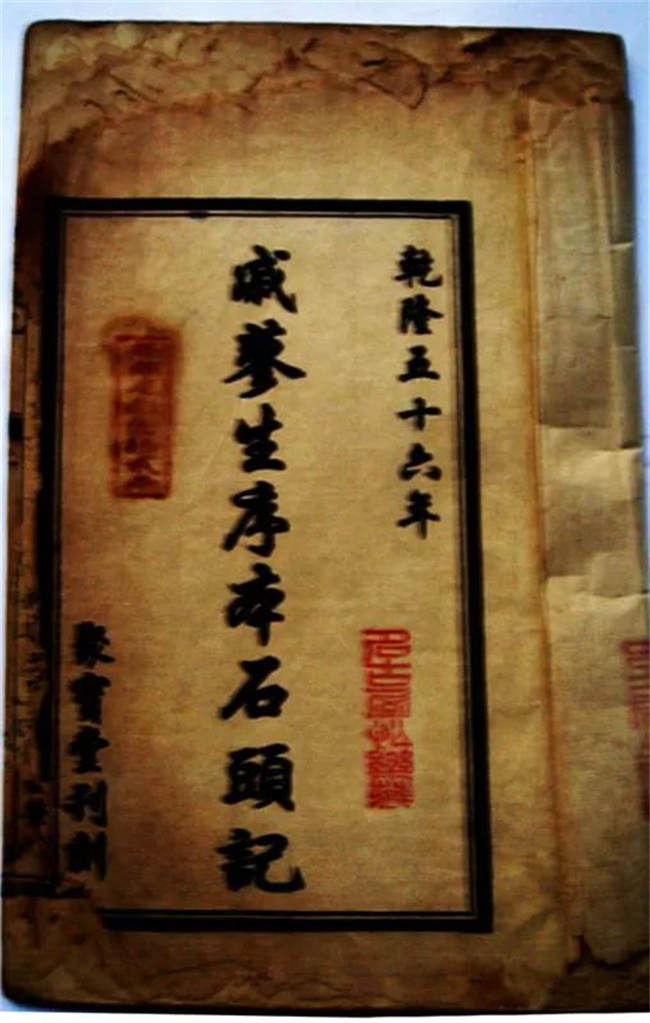 乾隆五十六年
戚蓼生序本石頭記
聚寶堂刊刻